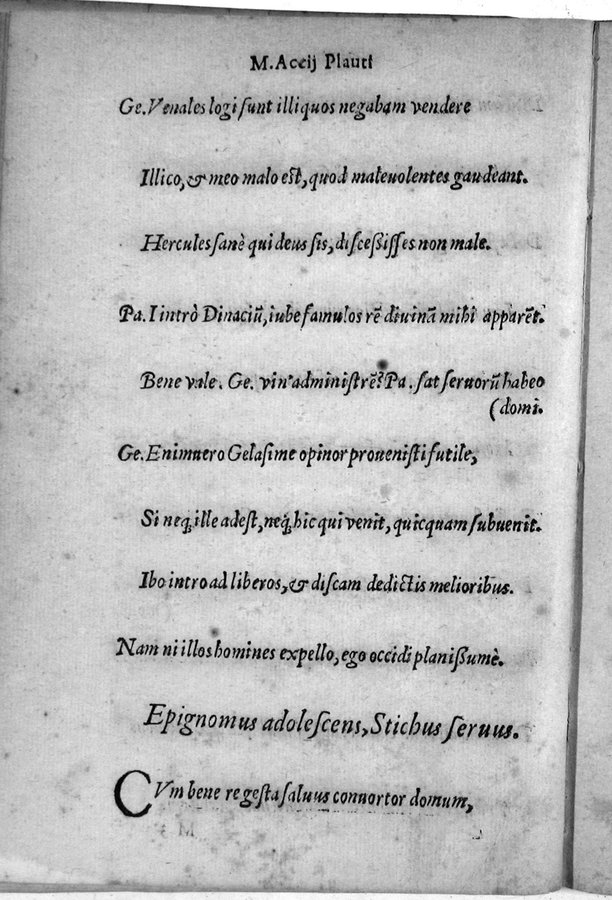 M. Accij Plauti
Ge. Venales logi sunt illi quos negabam vendere
Illico, & meo malo est, quod maleuolentes gaudeant.
Hercules sanè qui deus sis, discessisses non male.
Pa. I intrò Dinaciũ, iube famulos rẽ diuinã mihi apparẽt.
Bene vale. Ge. vin' administrẽ? Pa. sat seruorũ habeo
(domi.
Ge. Enimuero Gelasime opinor prouenisti futile,
Si neq; ille adest, neq; hic qui venit, quicquam subuenit.
Ibo intro ad liberos, & discam de dictis melioribus.
Nam ni illos homines expello, ego occidi planissumè.
Epignomus adolescens, Stichus seruus.
CVm bene re gesta saluus conuortor domum,